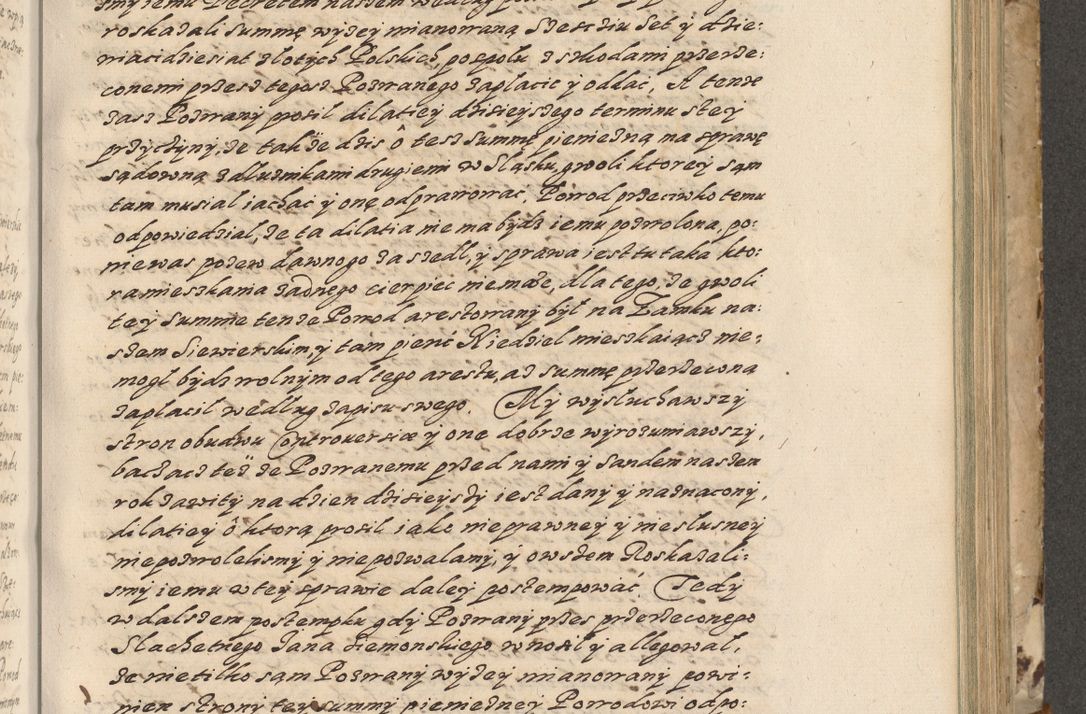 smy iemu Decretem naszem według
roskazali Summę wyżey mianowaną Sześćdziesiąt y dzie:
wiacidziesiat złotych Polskich pospołu z szkodami przerze:
conemi przesz tegosz Pozwanego zapłacic y oddac, A tenże
zasz Pozwany prosil dilatiey dzisieyszego terminu s tey
przyczyny, że także dzis ô tesz Summę pieniężną ma sprawę
sądowną z dlużnikami drugiemi w Sląsku, gwoli ktorey sąm
tam musial iachac y onę odprawowac, Powod przeciwko temu
odpowiedzial, że ta dilatia nie ma bydz iemu pozwolona, po:
niewas pozew dawnogo zaszedl, y sprawa iest tu taka kto:
ra mieszkania żadnego cierpiec niemoże, dla tego, że gwoli
tey Summie tenże Powod arestowany był na Zamku na:
szem Siewierskim, y tam pienć Niedziel mieszkaiącz nie:
mogl bydz wolnym od tego arestu, asz summę przerzeconą
zapłacil według zapisu swego. My wysluchawszy
stron obudwu Controuersiæ y one dobrze wyrozumiawszy,
baczącz też że Pozwanemu przed nami y Sandem naszem
rok zawity na dzien dzisieyszy iest dany y naznaczony,
dilatiey ô ktorą prosil iako nieprawney y nieslusney
niepozwolelismy y niepozwalamy, y owszem Roskazali:
smy iemu w tey sprawie daley postempowác. Tedy
w dalszem postempku gdy Pozwany przes przerzeconego
Slachetnego Jana Siemonskiego wnosil y allegowal,
że nie tilko sąm Pozwany wyżey mianowany powi:
nien strony tey summy pieniezney Powodowi odpo: